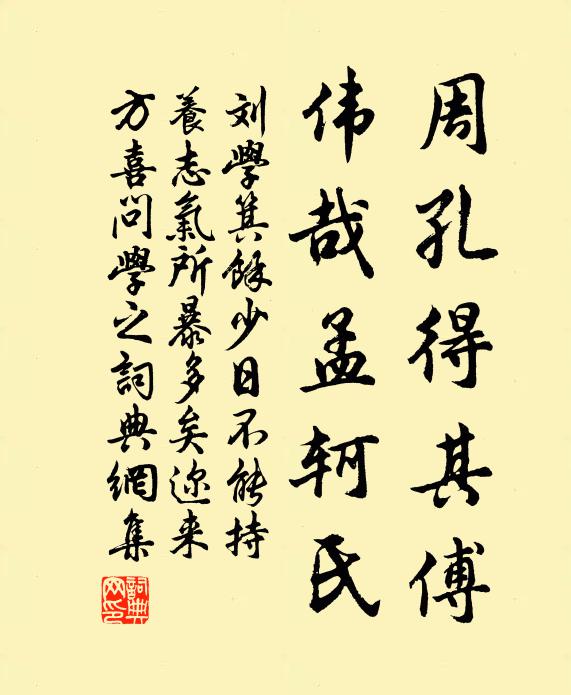 周孔得其傅
伟哉孟轲氏
刘學箕餘少日不能持
養志氣所暴多矣迩来
方喜問學之詞典網集
詞典
网印